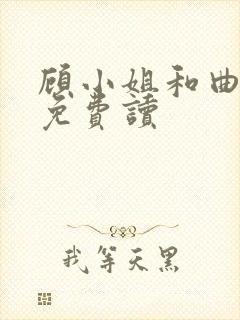 顾小姐和曲
免費讀
我等天黑